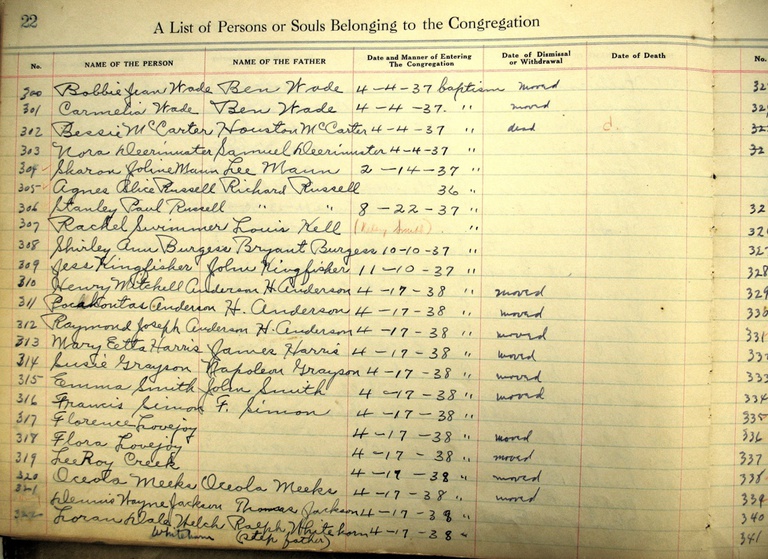 22
A List of Persons or Souls Belonging to the Congregation
No. NAME OF THE PERSON NAME OF THE FATHER Date and Manner of Entering The Congregation Date of Dismissal or Withdrawal Date of Death No.
300 Bobbie Jean Wade Ben Wade 4-4-37 baptism moved
301 Carmelia Wade Ben Wade 4-4-37. " moved
302 Bessie McCarter Houston McCarter 4-4-37 " dead d.
303 Nora Deerinwater Samuel Deerinwater 4-4-37 "
304 Sharon Joline Mann Lee Mann 2-14-37 "
305 Agnes Alice Russell Richard Russell 36 "
306 Stanley Paul Russell " " 8-22-37 "
307 Rachel Swimmer Louis Kell "
308 Shirley Ann Burgess Bryant Burgess 10-10-37 "
309 Jess Kingfisher John Kingfisher 11-10-37 " 328
310 Henry Mitchell Anderson H. Anderson 4-17-38 " moved 329
311 Pocahontas Anderson H. Anderson 4-17-38 " moved 330
312 Raymond Joseph Anderson H. Anderson 4-17-38 " moved 331
313 Mary Eetta Harris James Harris 4-17-38 " moved 332
314 Susie Grayson Napoleon Grayson 4-17-38 " moved 333
315 Emma Smith John Smith 4-17-38 " moved 334
316 Francis Simon F. Simon 4-17-38 " 335
317 Florence Lovejoy 4-17-38 " moved 336
318 Flora Lovejoy 4-17-38 " moved 337
319 LeeRoy Creek 4-17-38 " moved 338
320 Osceola Meeks Osceola Meeks 4-17-38 " moved 339
321 Dennis Wayne Jackson Thomas Jackson 4-17-38 " 340
Loran Dale Welch Ralph Whitehorn 4-17-38 " 341
Whitehorn (step father)